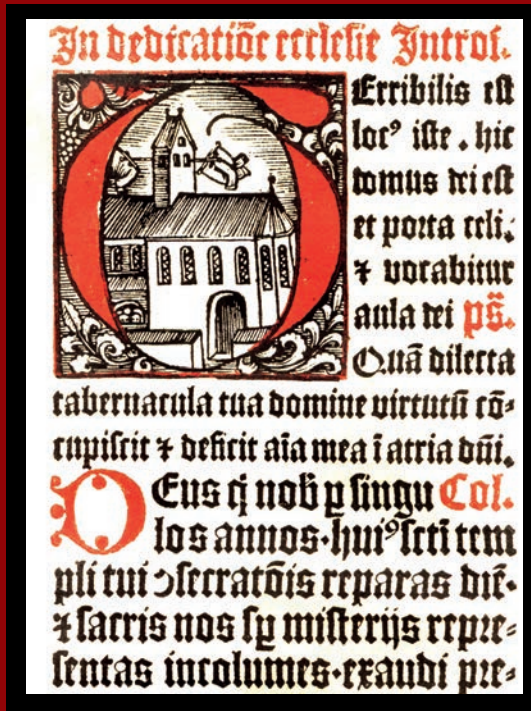 In dedicatiõe ecclesie Introi.
Erribilis est
locꝰ iste . hic
domus dei est
et porta celi:
⁊ vocabitur
aula dei ps̄.
Quã dilecta
tabernacula tua domine virtutũ cõ⸗
cupiscit ⁊ deficit aīa mea ī atria dn̄i.
DEus q̇ nob̄ ꝑ singu Col.
los annos·huiꝰ scti tem
pli tui ↄsecratõis reparas diē·
⁊ sacris nos sꝑ misterijs repre⸗
sentas incolumes·exaudi pre⸗